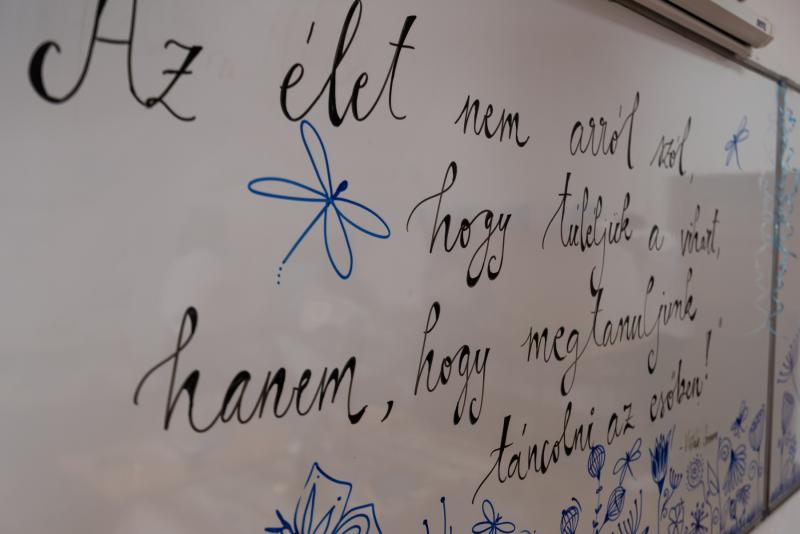 Az élet nem arról szól,
hogy túléljük a vihart,
hanem, hogy megtanuljunk
táncolni az esőben!